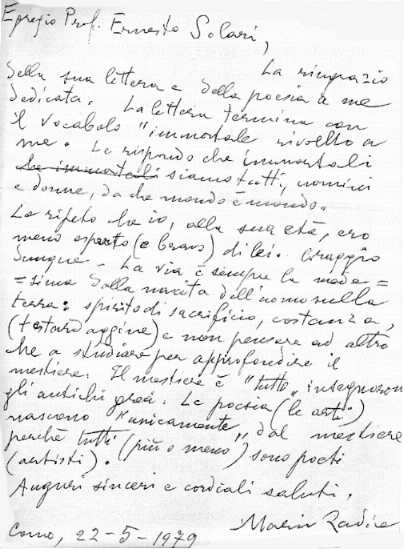 Egregio Prof. Ernesto Solari,
La ringrazio
della sua lettera e della poesia a me
dedicata. La lettera termina con
il vocabolo "immortale rivolto a
me. Le rispondo che immortali
che immortali siamo tutti, uomini
e donne, da che mondo è mondo.
Le ripeto che io, alla sua età, ero
meno esperto (e bravo) di lei. Coraggio
dunque. La via è sempre la mede=
=sima dalla nascita dell'uomo sulla
terra: spirito di sacrificio, costanza,
(testardaggine) e non pensare ad altro
che a studiare per approfondire il
mestiere. Il mestiere è "tutto" insegnavan
gli antichi greci. Le poesia (le arti)
nascono "unicamente" dal mestiere
perché tutti (più o meno) sono poeti
(artisti).
Auguri sinceri e cordiali saluti.
Mario Radice
Como, 22-5-1979